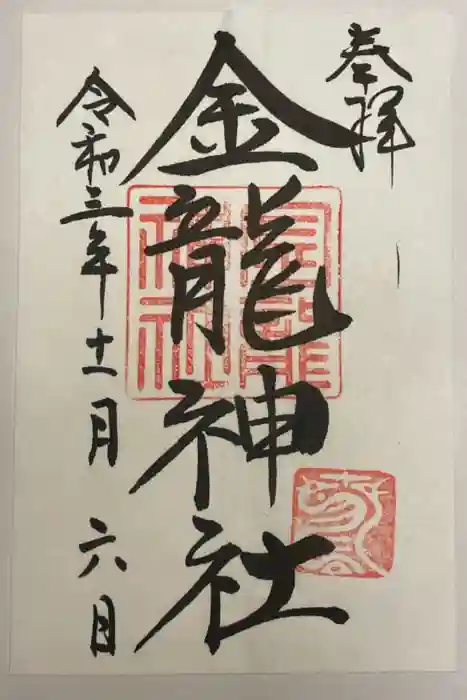 奉拝
金龍神社
令和三年十一月六日